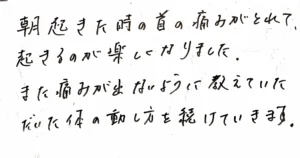 朝起きた時の首の痛みがとれて、
起きるのが楽しくなりました。
また痛みが出ないように教えていた
だいた体の動し方を続けていきます。